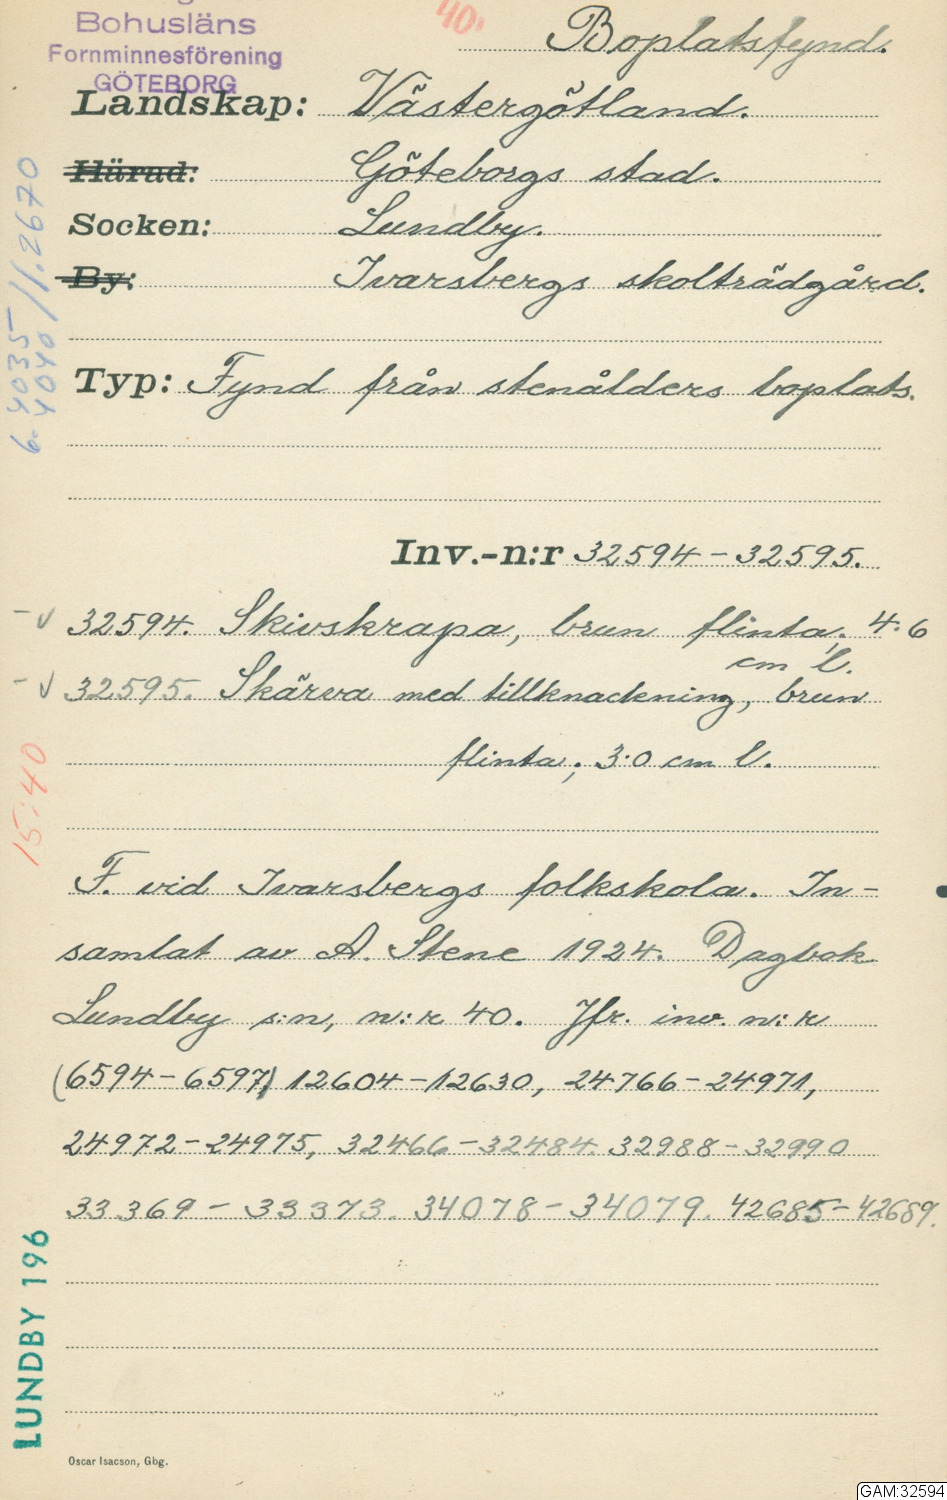 Bohusläns
Fornminnesförening
GÖTEBORG
40.
Boplatsfynd.
Landskap: Västergötland.
Härad: Göteborgs stad.
Socken: Lundby.
By: Ivarsbergs skolträdgård.
Typ: Fynd från stenålders boplats.
6. 4035 // . 2670
4040
Inv.-n:r 32594-32595.
32594. Skivskrapa, brun flinta; 4.6
cm l.
32595. Skärva med tillknackning, brun
flinta; 3.0 cm l.
15:40
F. vid Ivarsbergs folkskola. In-
samlat av A. Stene 1924. Dagbok
Lundby s:n, n:r 40. Jfr. inv. n:r
(6594-6597) 12604-12630, 24766-24971,
24972-24975, 32466-32484. 32988-32990
33369-33373. 34078-34079. 42685-42689.
LUNDBY 196
Oscar Isacson, Gbg.
GAM:32594